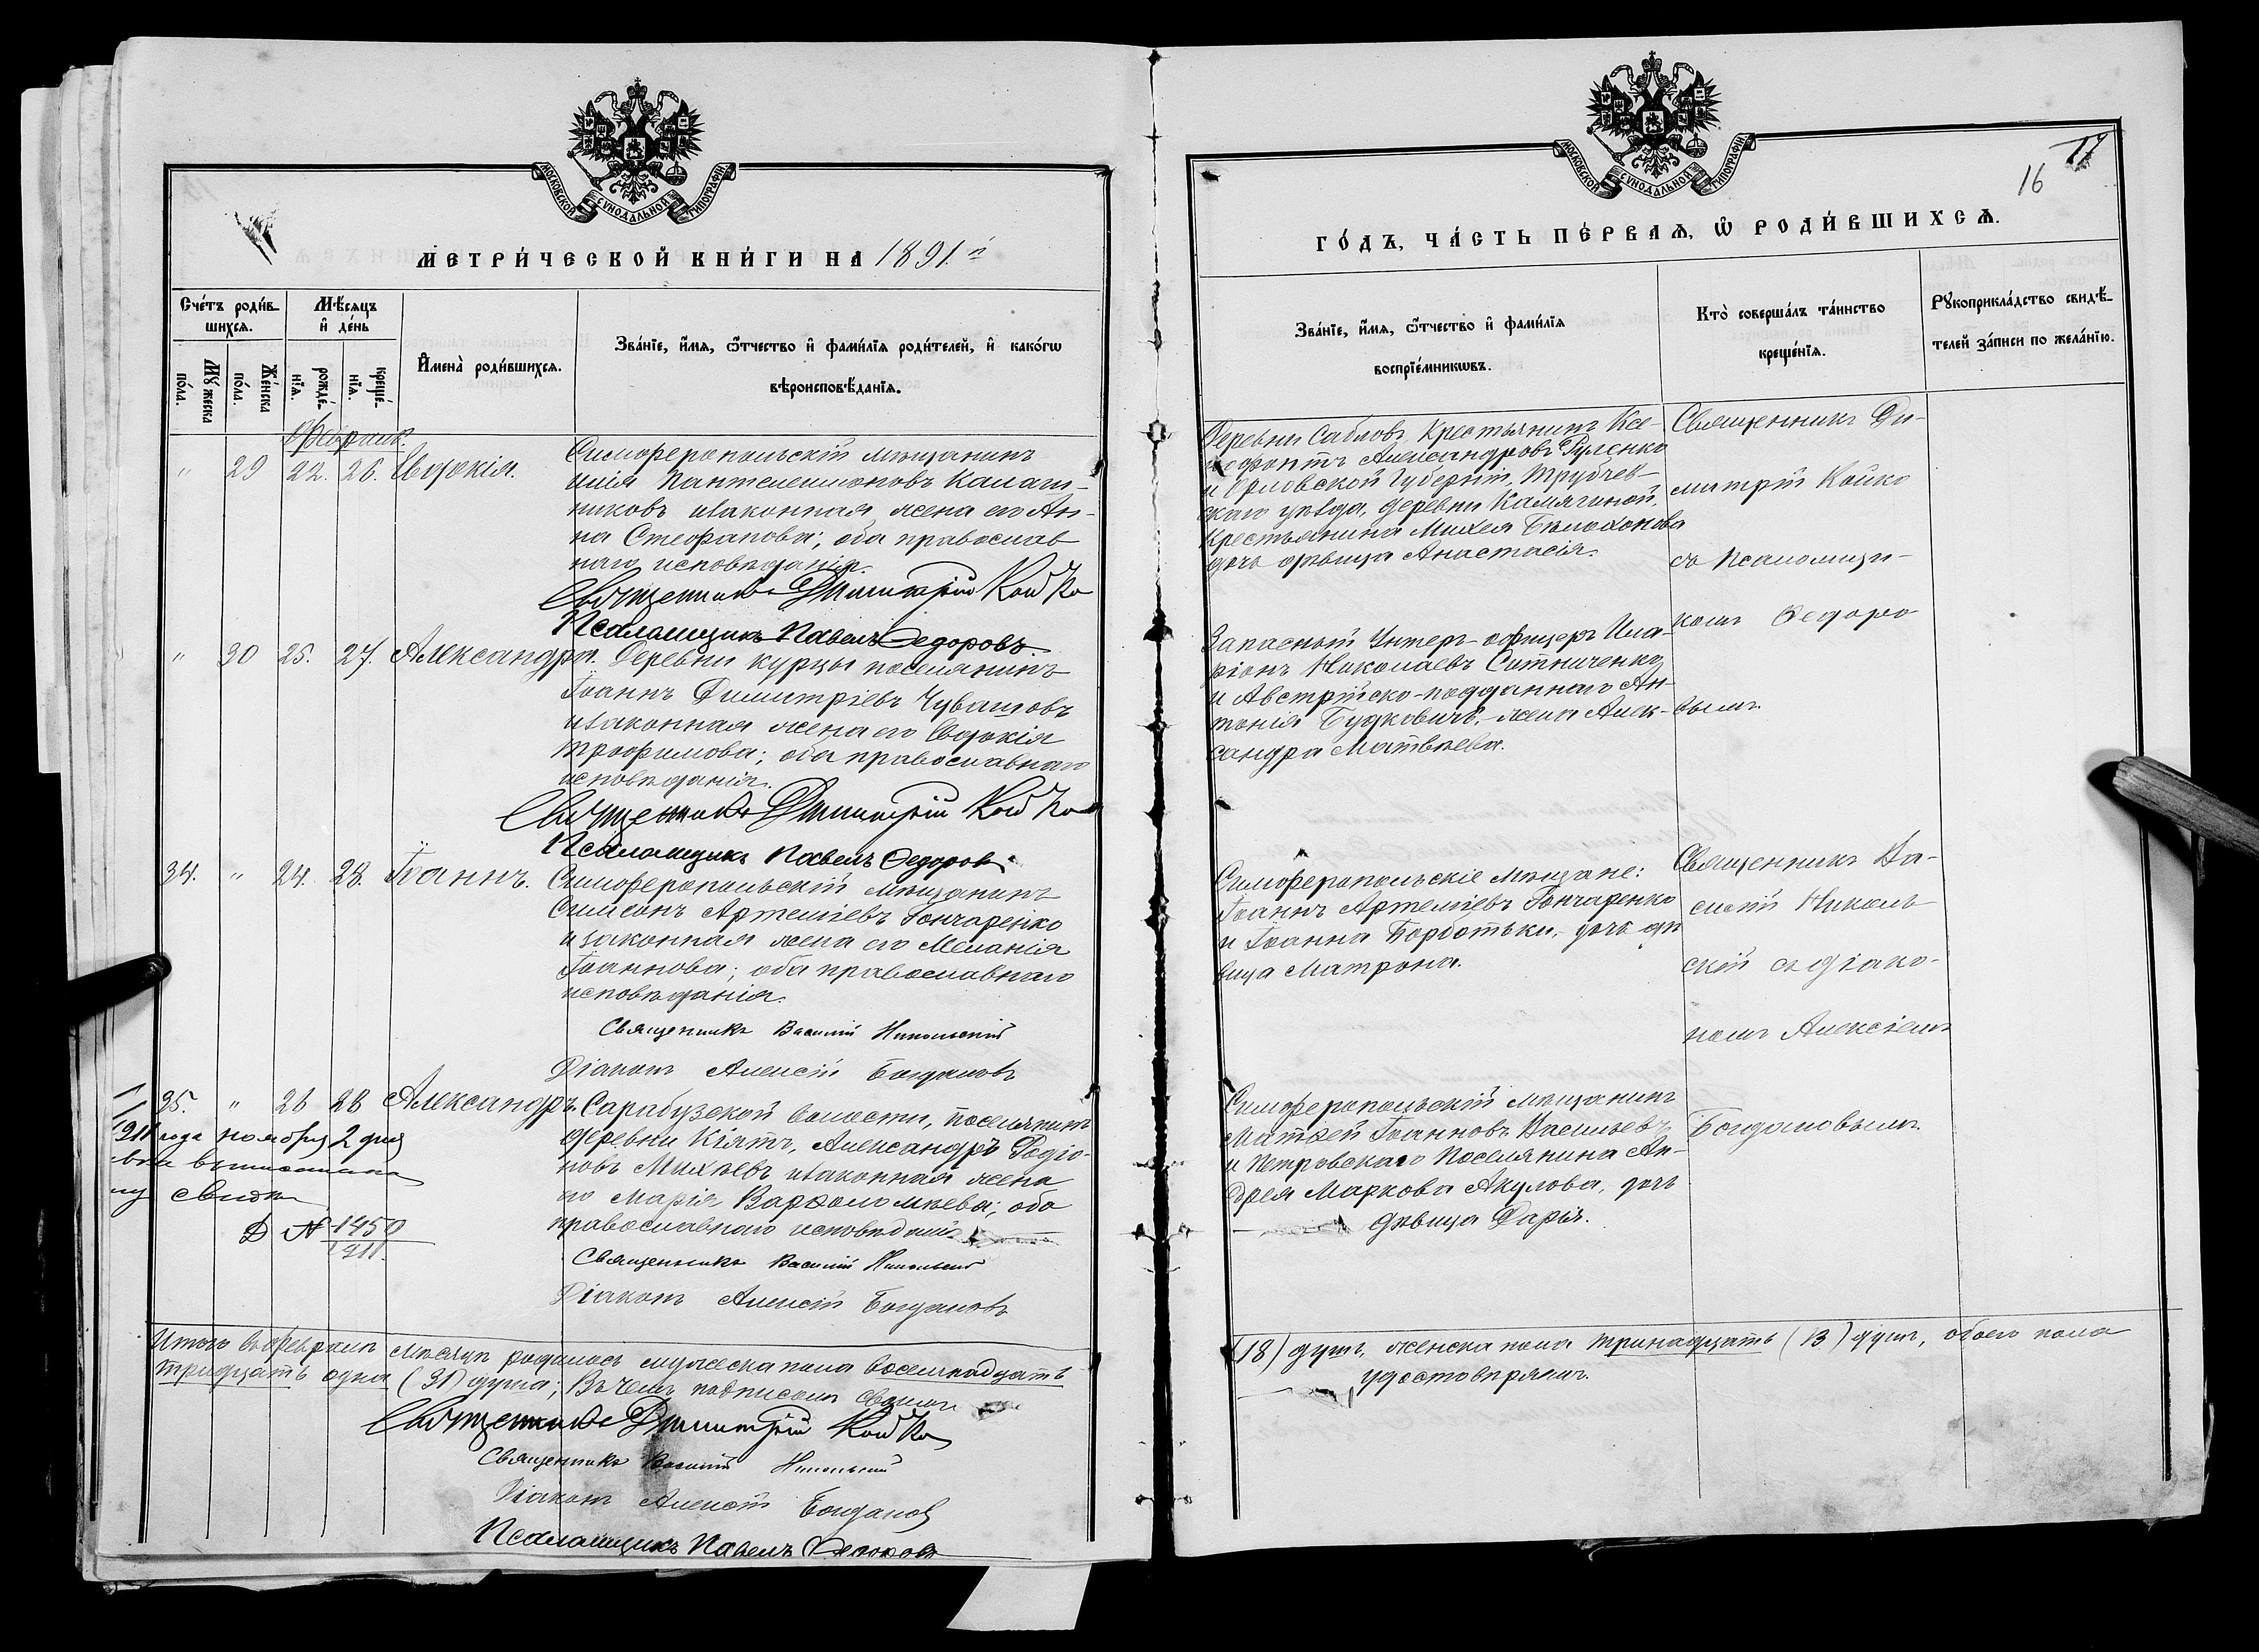 МОСКОВСКОЙ СѴНОДАЛЬНОЙ ТИПОГРАФІИ
МЕТРИ́ЧЕСКОЙ КНИ́ГИ НА 1891 й
Сче́тъ роди́в-
шихсѧ.
Мѣ́сяцъ
и҆ де́нь
И҆мена̀ роди́вшихсѧ.
Зва́нїе, и҆́мѧ, ѻ҆́тчество и҆ фами́лїѧ роди́телей, и҆ како́гѡ
вѣроисповѣ́данїѧ.
Мꙋ́жеска
по́ла.
Же́нска
по́ла.
рожде́-
нїѧ.
креще́-
нїѧ.
Февраль.
" 29 22. 26. Евдокія.
Симферопольскій мѣщанинъ
Илія Пантелеимоновъ Калаш-
никовъ и законная жена его Ан-
на Стефанова; оба православ
наго исповѣданія.
Священникъ Димитрій Койко
Псаломщикъ Павелъ Ѳедоровъ.
" 30 25. 27. Александра.
Деревни Курцы поселянинъ
Іоаннъ Димитріевъ Чувашовъ
и законная жена его Евдокія
Трофимова; оба православнаго
исповѣданія.
Священникъ Димитрій Койко
Псаломщикъ Павелъ Ѳедоровъ.
34. " 24. 28. Іоаннъ.
Симферопольскій мѣщанинъ
Симеонъ Артеміевъ Гончаренко
и законная жена его Меланія
Іоаннова; оба православнаго
исповѣданія.
Священникъ Василій Никольскій
Діаконъ Алексій Богдановъ
35. " 26 28 Александръ.
Сарабузской волости, поселянинъ
деревни Кіятъ, Александръ Родіо-
новъ Михѣевъ и законная жена
его Марія Варѳоломѣева; оба
православнаго исповѣданія
Священникъ Василій Никольскій
Діаконъ Алексій Богдановъ
1911 года ноября 2 дня
выписана
свидѣ
Д № 1450
1911.
Итого въ Февралѣ мѣсяцѣ родилось мужеска пола восемнадцать
тридцать одна (31) душа; Въ чемъ подписомъ своимъ
Священникъ Димитрій Койко
Священникъ Василій Никольскій
Діаконъ Алексій Богдановъ
Псаломщикъ Павелъ Ѳедоровъ
МОСКОВСКОЙ СѴНОДАЛЬНОЙ ТИПОГРАФІИ
17
16
ГО́ДЪ, ЧА́СТЬ ПЕ́РВАѦ, Ѡ҆ РОДИ́ВШИХСѦ.
Зва́нїе, и҆́мѧ, ѻ҆́тчество и҆ фами́лїѧ
воспрїе́мникѡвъ.
Кто̀ соверша́лъ та́инство
креще́нїѧ.
Рꙋкоприкла́дство свидѣ́-
телей за́писи по жела́нїю.
Деревни Сабловъ, крестьянинъ Ксе-
нофонтъ Александровъ Руленко
и Орловской Губерніи, Трубчев-
скаго уѣзда, деревни Камягиной,
крестьянина Михея Бѣлохонова
дочь дѣвица Анастасія.
Священникъ Ди-
митрій Койко
съ Псаломщи-
комъ Ѳедоро
вымъ.
Запасный Унтеръ-офицеръ Ила-
ріонъ Николаевъ Ситниченко
и Австрійско-подданнаго Ан-
тонія Будковичъ, жена Алек-
сандра Матвѣева.
Симферопольскіе мѣщане:
Іоаннъ Артеміевъ Гончаренко
и Іоанна Борботьки, дочь дѣ
вица Матрона.
Священникъ Ва-
силій Николь-
скій съ діако-
номъ Алексіемъ
Богдановымъ.
Симферопольскій мѣщанинъ
Матѳей Іоанновъ Васильевъ
и Петровскаго поселянина Ан-
дрея Маркова Акулова, дочь
дѣвица Дарія.
(18) душъ, женска пола тринадцать (13) душъ, обоего пола
удостовѣряемъ.